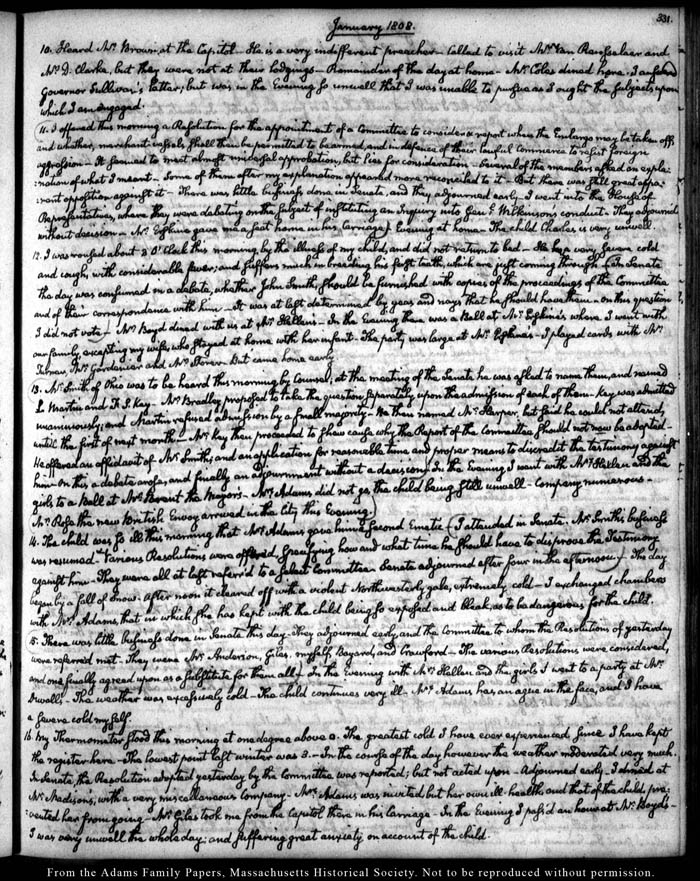 331.
January 1808.
10. Heard Mr. Brown, at the Capitol — He is a very indifferent preacher — Called to visit Mr. Van Rensselaer and
Mr. D. Clarke, but they were not at their lodgings — Remainder of the day at home — Mr. Coles dined here. I answered
Governor Sullivan's letter; but was in the Evening so unwell that I was unable to pursue as I ought the subjects upon
which I am engaged.
11. I offered this morning a Resolution for the appointment of a Committee to consider & report when the Embargo may be taken off;
and whether, merchant vessels, shall then be permitted to be armed, and in defence of their lawful Commerce to resist foreign
aggression — It seemed to meet almost universal approbation, but lies for consideration — Several of the members asked an expla-
-nation of what I meant — Some of them after my explanation appeared more reconciled to it — But there was still great appa-
-rent opposition against it — There was little business done in Senate, and they adjourned early — I went into the House of
Representatives, where they were debating on the subject of instituting an Inquiry into Genl. Wilkinson's conduct — They adjourned
without decision — Mr. gave me a seat home in his Carriage) Evening at home — The child Charles is very unwell
12. I was roused about 2 O'Clock this morning, by the illness of my child; and did not return to bed — He has a very severe cold
and cough, with considerable fever; and suffers much in breeding his first teeth, which are just coming through — (In Senate
the day was consumed in a debate, whether John Smith, should be furnished with copies of the proceedings of the Committee
and of their correspondence with him — It was at last determined by yeas and nays that he should have them — on this question
I did not vote) — Mr. Boyd dined with us at Mr. Hellen's — In the Evening there was a Ball at Mr. where I went with
our family, excepting my wife, who stayed at home with her infant — The party was large at Mr. — I played cards with Mr.
Turner, Mr. Gardenier and Mr. But came home early.
13. Mr. Smith of Ohio was to be heard this morning by Counsel; at the meeting of the Senate he was asked to name them, and named
L. Martin and F. S. Key — Mr. Bradley proposed to take the question separately upon the admission of each of them — Key was admitted
unanimously; and Martin refused admission by a small majority — He then named Mr. Harper, but said he could not attend,
until the first of next month — Mr. Key then proceeded to shew cause why the Report of the Committee should not now be adopted —
He offered an affidavit of Mr. Smith; and an application for reasonable time and proper means to discredit the testimony against
him — On this a debate arose, and finally an adjournment without a decision — In the Evening I went with Mrs. Hellen and the
girls to a Ball at Mr. Brent the Mayor's — Mrs. Adams did not go, the child being still unwell — Company numerous —
Mr. Rose the new British Envoy arrived in the City this Evening.)
14. The child was so ill this morning that Mrs. Adams gave him a second Emetic — (I attended in Senate. Mr. Smith's business
was resumed — Various Resolutions were offered, specifying how and what time he should have to disprove the Testimony
against him — They were all at last referr'd to a select Committee — Senate adjourned after four in the afternoon) — The day
began by a fall of snow — After noon it cleared off with a violent Northwesterly gale, extremely cold — I exchanged chambers
with Mrs. Adams, that in which she has kept with the child being so exposed and bleak, as to be dangerous for the child.
15. There was little business done in Senate this day — They adjourned early, and the Committee to whom the Resolutions of yesterday
were referr'd met — They were Mr. Anderson, Giles, myself, Bayard, and Crawford — The various Resolutions were considered,
and one finally agreed upon as a substitute for them all) In the Evening with Mrs. Hellen and the girls I went to a party at Mr.
Duvall's — The weather was excessively cold — The child continues very ill — Mrs. Adams has an ague in the face, and I have
a severe cold myself.
16. My Thermometer stood this morning at one degree above 0. The greatest cold I have ever experienced, since I have kept
the register here — The lowest point last winter was 3. — In the course of the day however the weather moderated very much.
In Senate, the Resolution adopted yesterday by the Committee was reported; but not acted upon — Adjourned early — I dined at
Mr. Madison's, with a very miscellaneous company — Mrs. Adams was invited but her own ill-health and that of the child pre-
-vented her from going — Mr. Giles took me from the Capitol there in his Carriage — In the Evening I pass'd an hour at Mr. Boyd's —
I was very unwell the whole day; and suffering great anxiety on account of the child.
From the Adams Family Papers, Massachusetts Historical Society. Not to be reproduced without permission.